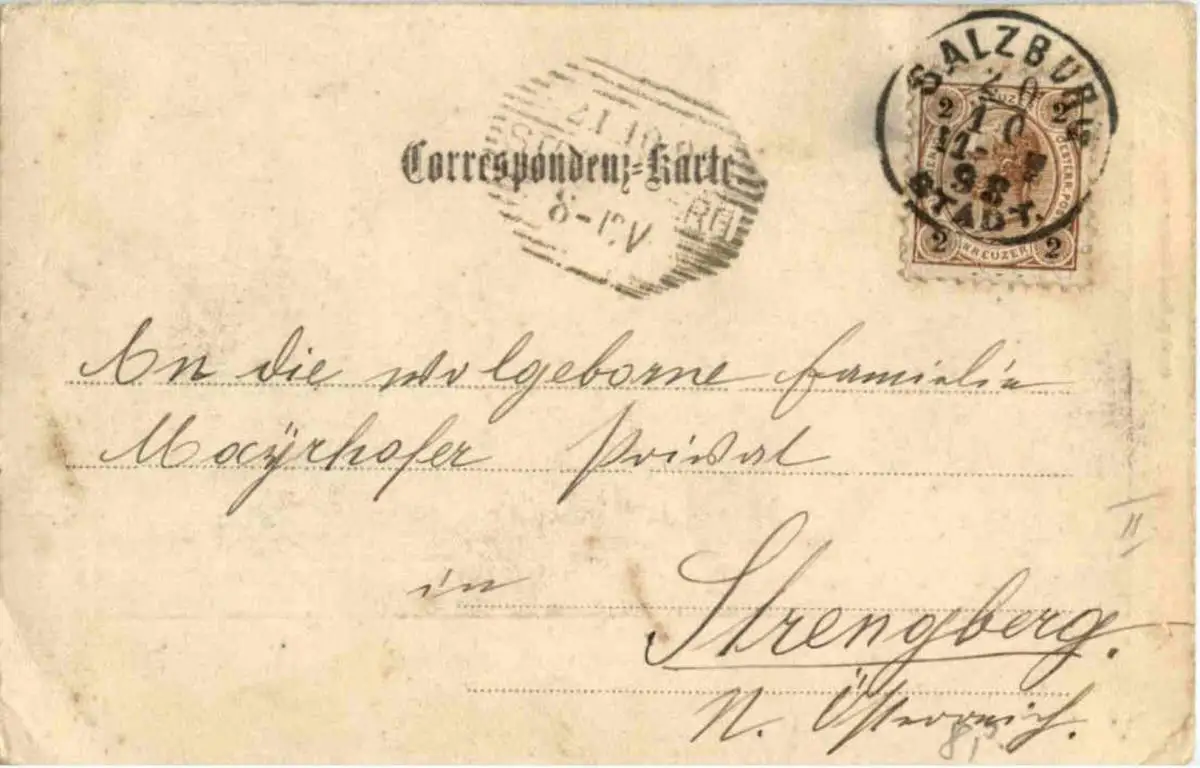 SALZBURG
20
10
98
STADT.
2 2
KREUZER
2 2
21.10
8-12V
Correspondenz-Karte
An die wolgeborne Familie
Mayrhofer Privat
in Strengberg.
N. Österreich.
II